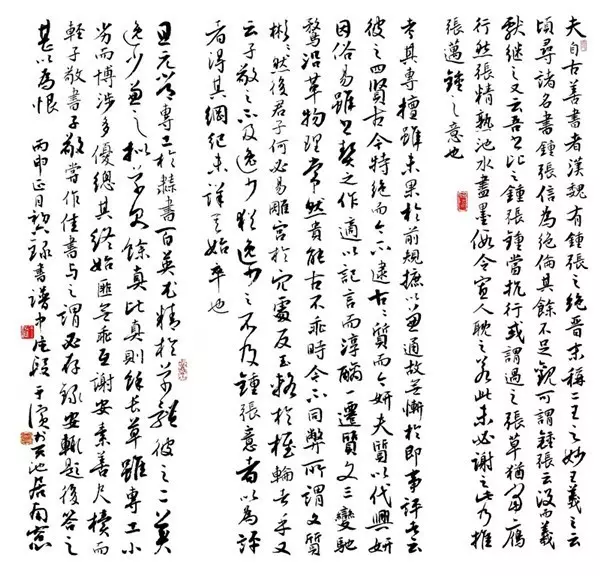 夫自古善書者漢魏有鍾張之絕晉末稱二王之妙王羲之云
頃尋諸名書鍾張信為絕倫其餘不足觀可謂鍾張云沒而羲
獻繼之又云吾書比之鍾張鍾當抗行或謂過之張草猶當鴈
行然張精熟池水盡墨假令寡人耽之若此未必謝之此乃推
張邁鍾之意也
考其專擅雖未果於前規摭以兼通故無慚於即事評者云
彼之四賢古今特絕而今不逮古古質而今妍夫質以代興妍
因俗易雖書契之作適以記言而淳醨一遷質文三變馳
騖沿革物理常然貴能古不乖時今不同弊所謂文質
彬彬然後君子何必易雕宮於穴處反玉輅於椎輪者乎又
云子敬之不及逸少猶逸少之不及鍾張意者以為評
者得其綱紀未詳其始卒也
且元常專工於隸書百英尤精於草體彼之二美
逸少兼之擬草則餘真比真則餘長草雖專工小
劣而博涉多優總其終始匪無乖互謝安素善尺牘而
輕子敬書子敬嘗作佳書與之謂必存錄安輒題後答之
甚以為恨 丙申正月錄書譜中段 居南窗